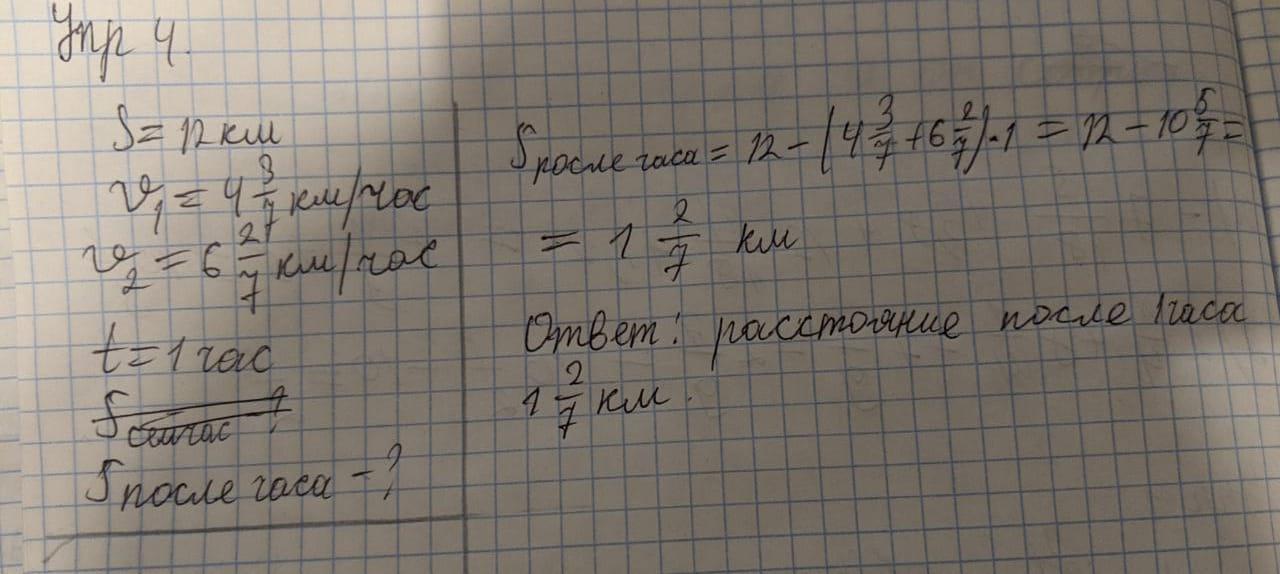 Упр 4.
S = 12 км
v₁ = 4 3/7 км/час
v₂ = 6 2/7 км/час
t = 1 час
S сейчас - ?
S после часа - ?
S после часа = 12 - (4 3/7 + 6 2/7) · 1 = 12 - 10 5/7 =
= 1 2/7 км
Ответ: расстояние после 1 часа
1 2/7 км.